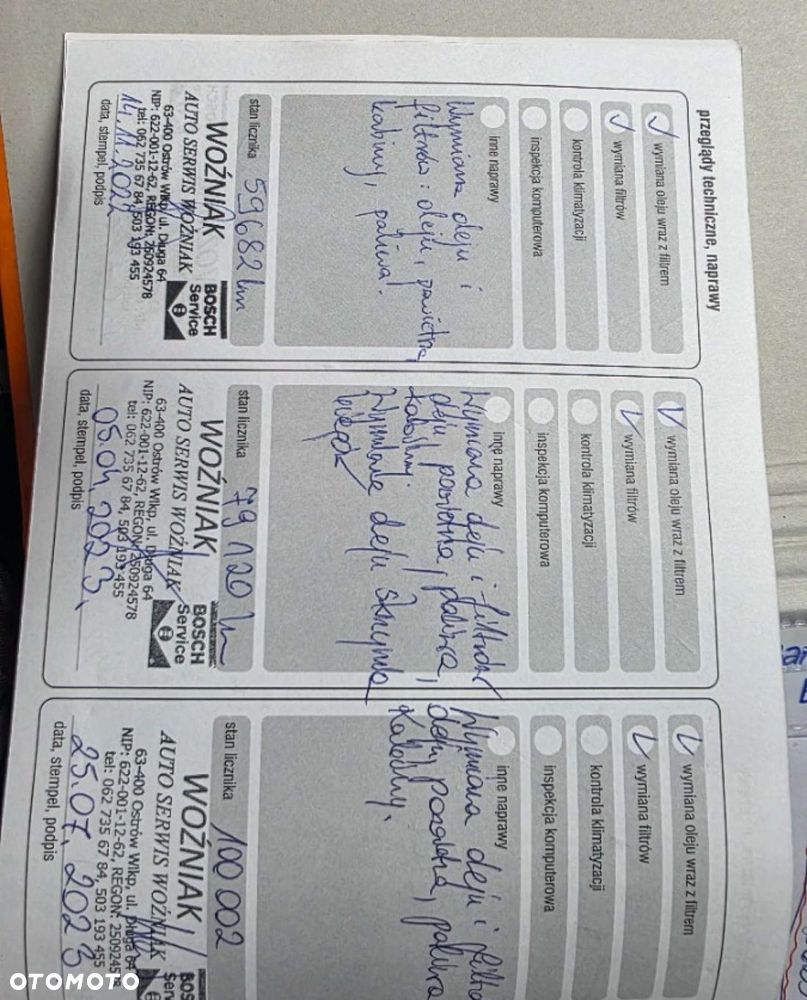 przeglądy techniczne, naprawy
wymiana oleju wraz z filtrem
wymiana filtrów
kontrola klimatyzacji
inspekcja komputerowa
inne naprawy
Wymiana oleju i
filtrów: oleju, powietrza,
kabiny, paliwa.
stan licznika 59682 km
WOŹNIAK
AUTO SERWIS WOŹNIAK
63-400 Ostrów Wlkp, ul. Długa 64
NIP: 622-001-12-62, REGON: 250924578
tel: 062 735 67 84, 503 193 455
BOSCH
Service
14.11.2022
data, stempel, podpis
wymiana oleju wraz z filtrem
wymiana filtrów
kontrola klimatyzacji
inspekcja komputerowa
inne naprawy
Wymiana oleju i filtrów
oleju, powietrza, paliwa,
Wymiana oleju skrzynia
biegów
stan licznika 79 120 km
WOŹNIAK
AUTO SERWIS WOŹNIAK
63-400 Ostrów Wlkp, ul. Długa 64
NIP: 622-001-12-62, REGON: 250924578
tel: 062 735 67 84, 503 193 455
BOSCH
Service
05.04.2023
data, stempel, podpis
wymiana oleju wraz z filtrem
wymiana filtrów
kontrola klimatyzacji
inspekcja komputerowa
inne naprawy
Wymiana oleju i
oleju, powietrza, paliwa
kabiny.
stan licznika 100 002
WOŹNIAK
AUTO SERWIS WOŹNIAK
63-400 Ostrów Wlkp, ul. Długa 64
NIP: 622-001-12-62, REGON: 2509245
tel: 062 735 67 84, 503 193 455
BOS
Serv
25.07.2023
data, stempel, podpis
OTOMOTO